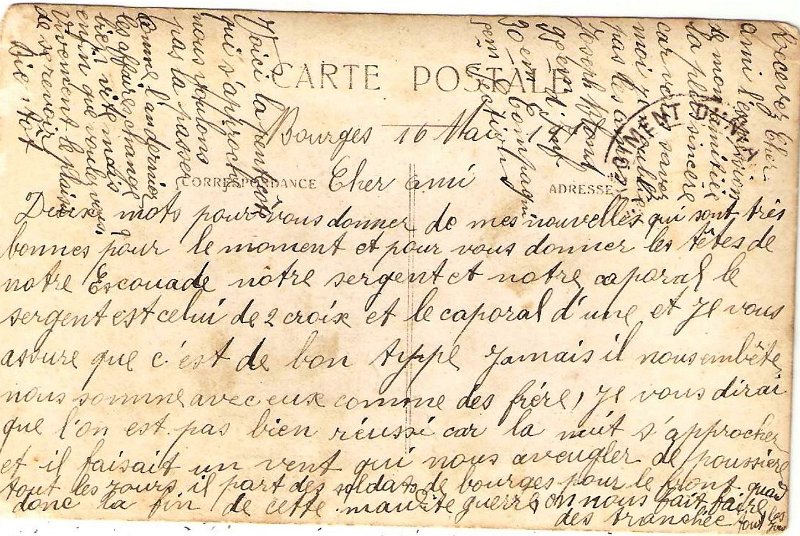 CARTE POSTALE
Bourges 16 Mai
CORRESPONDANCE
Cher ami
ADRESSE
Deux mots pour vous donner de mes nouvelles qui sont très
bonnes pour le moment et pour vous donner les têtes de
notre Escouade nôtre sergent et notre caporal le
sergent est celui de 2 croix et le caporal d'une et Je vous
assure que c'est de bon type Jamais il nous embête
nous somme avec eux comme des frère, Je vous dirai
que l'on est pas bien réussi car la nuit s'approcher
et il faisait un vent qui nous aveugler de poussière
tout les jours il part des soldats de bourges pour le front quand
donc la fin de cette maudite guerre on nous fait faire
des tranchée tout les jour
Voici la
qui s'approche
nous voulons
pas la passer
comme l'an dernier
les affaire change
bien vite mais
enfin que voulez vous
Vivement le plaisir
de se revoir
Recevez Cher
ami l'expression
de mon amitiée
la plus sincère
car vous savez
moi
pas les
Joseph
30em Compagnie